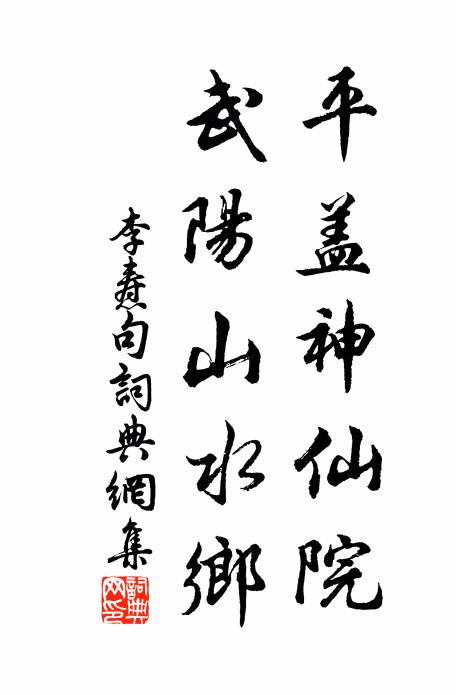 平盖神仙院
武陽山水鄉
李燾句詞典網集
詞典网印